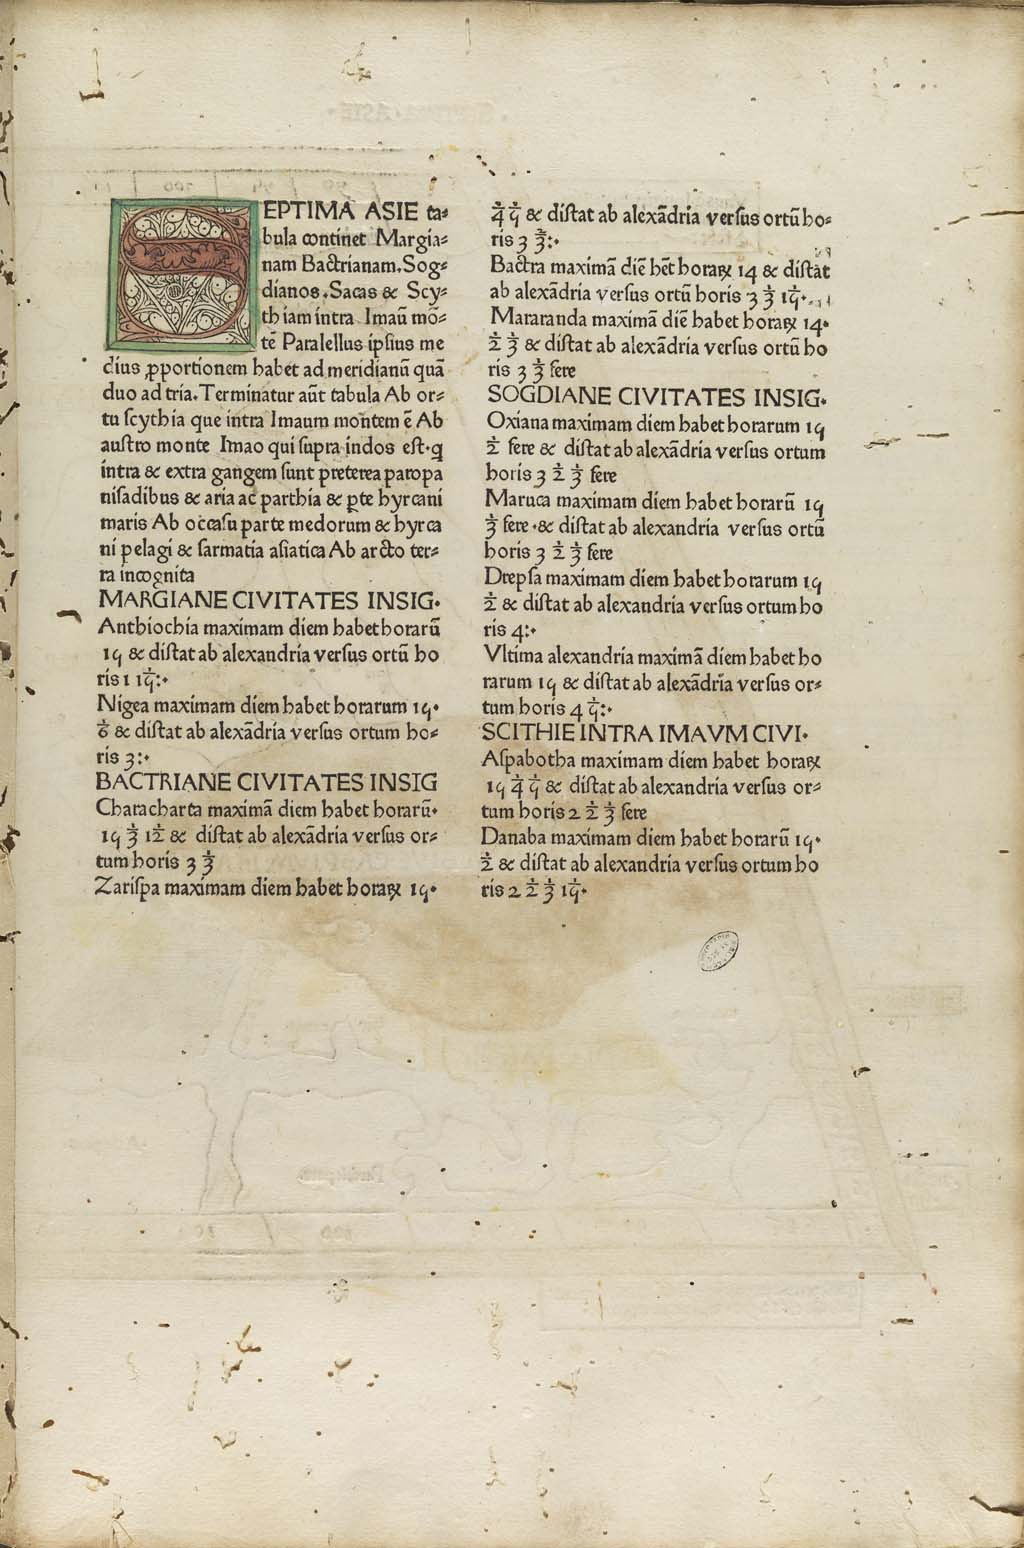 SEPTIMA ASIE ta⸗
bula continet Margia⸗
nam Bactrianam.Sog⸗
dianos.Sacas & Scy⸗
thiam intra Imaū mō⸗
tē Paralellus ipsius me
dius ꝓportionem habet ad meridianū quā
duo ad tria.Terminatur aūt tabula Ab or⸗
tu scythia que intra Imaum montem ē Ab
austro monte Imao qui supra indos est.q
intra & extra gangem sunt preterea paropa
nisadibus & aria ac parthia & ꝑte hyrcani
maris Ab occasu parte medorum & hyrca
ni pelagi & sarmatia asiatica Ab arcto ter⸗
ra incognita
MARGIANE CIVITATES INSIG.
Anthiochia maximam diem habet horarū
15 & distat ab alexandria versus ortū ho
ris 1 1/15:.
Nigea maximam diem habet horarum 15.
1/6 & distat ab alexādria versus ortum ho⸗
ris 3:.
BACTRIANE CIVITATES INSIG
Characharta maximā diem habet horarū.
15 1/3 1/12 & distat ab alexādria versus or⸗
tum horis 3 1/3
Zarispa maximam diem habet horaꝝ 15.
1/4 1/5 & distat ab alexādria versus ortū ho⸗
ris 3 1/3:.
Bactra maximā diē hēt horaꝝ 14 & distat
ab alexādria versus ortū horis 3 1/3 1/15.
Mararanda maximā diē habet horaꝝ 14.
1/2 1/3 & distat ab alexādria versus ortū ho
ris 3 1/3 fere
SOGDIANE CIVITATES INSIG.
Oxiana maximam diem habet horarum 15
1/2 fere & distat ab alexādria versus ortum
horis 3 1/2 1/3 fere
Maruca maximam diem habet horarū 15
1/3 fere.& distat ab alexandria versus ortū
horis 3 1/2 1/3 fere
Drepsa maximam diem habet horarum 15
1/2 & distat ab alexandria versus ortum ho
ris 4:.
Vltima alexandria maximā diem habet ho
rarum 15 & distat ab alexādria versus or⸗
tum horis 4 1/5:.
SCITHIE INTRA IMAVM CIVI.
Aspabotha maximam diem habet horaꝝ
15 1/4 1/5 & distat ab alexandria versus or⸗
tum horis 2 1/2 1/3 fere
Danaba maximam diem habet horarū 15.
1/2 & distat ab alexandria versus ortum ho
ris 2 1/2 1/3 1/15.